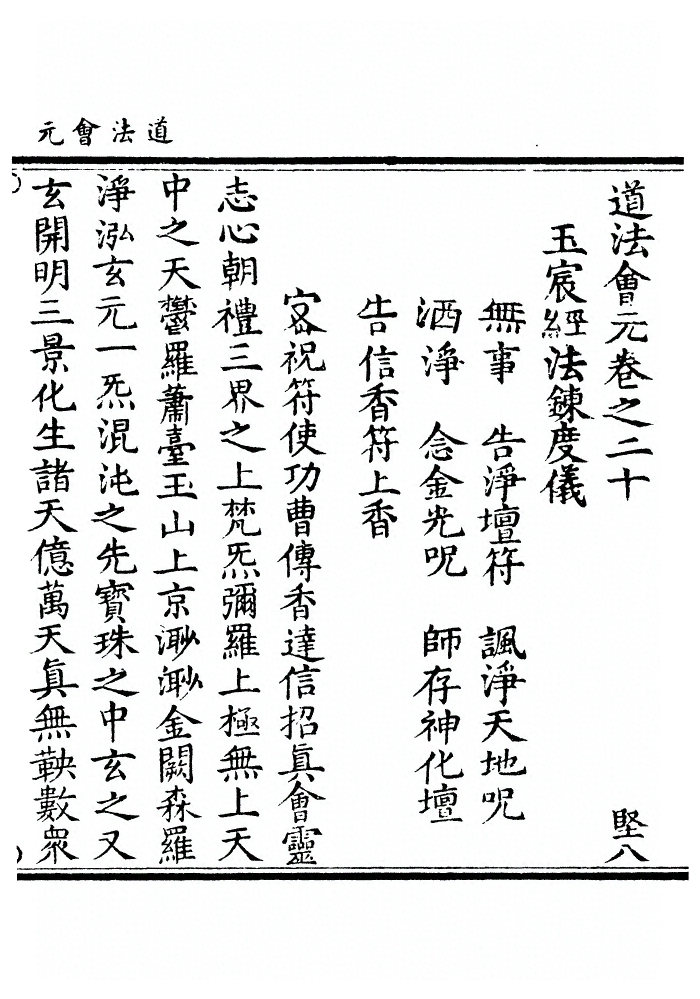 元會法道
道法會元卷之二十 堅八
玉宸經法鍊度儀
無事 告淨壇符 諷淨天地呪
洒淨 念金光呪 師存神化壇
告信香符上香
宻祝符使功曹傳香達信招眞會靈
志心朝禮三界之上梵炁彌羅上極無上天
中之天鬱羅蕭臺玉山上京渺渺金闕森羅
淨泓玄元一炁混沌之先寶珠之中玄之又
玄開明三景化生諸天億萬天眞無鞅數衆